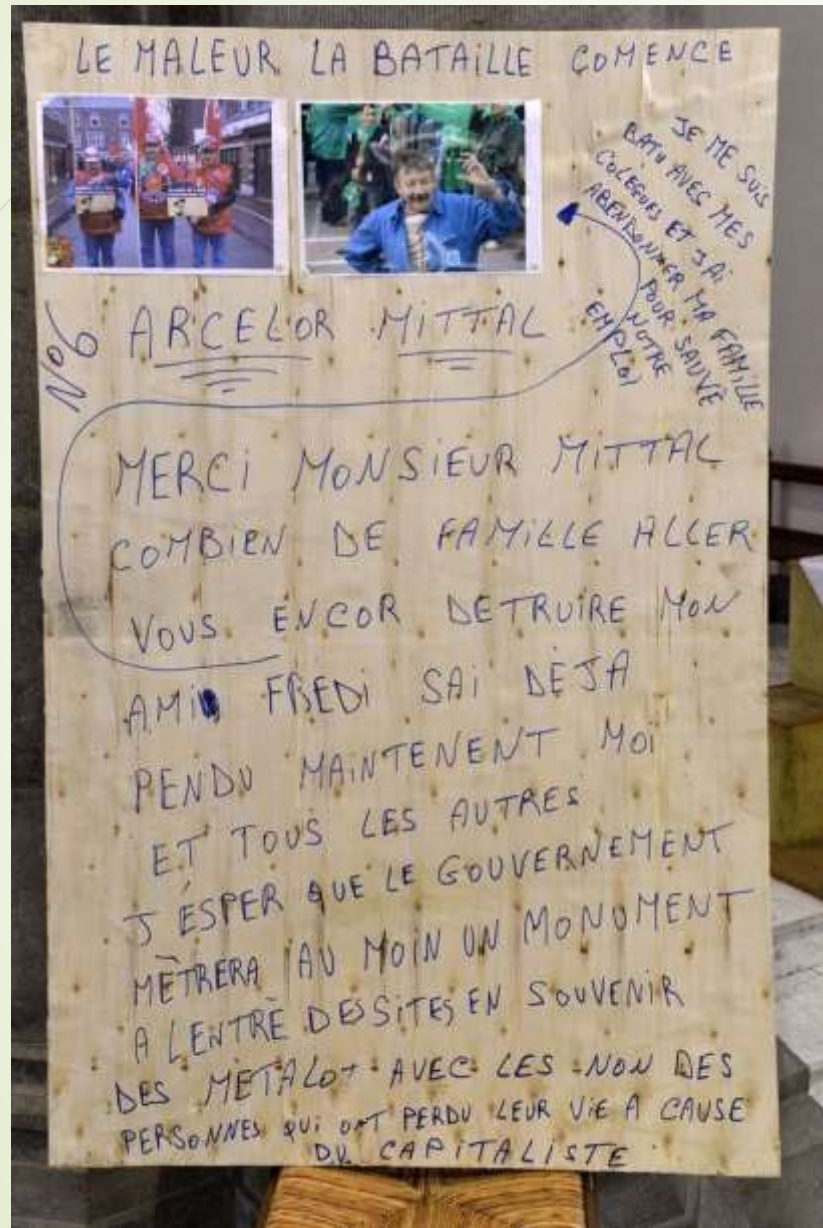 LE MALEUR LA BATAILLE COMENCE
JE ME SUIS
BATU AVEC MES
COLEGUES ET J AI
ABENDONNER MA FAMILLE
POUR SAUVÉ
NOTRE
EMPLOI
N°6
ARCELOR MITTAL
MERCI MONSIEUR MITTAL
COMBIEN DE FAMILLE ALLER
VOUS ENCOR DETRUIRE MON
AMI FREDI SAI DEJA
PENDU MAINTENENT MOI
ET TOUS LES AUTRES
J ÉSPER QUE LE GOUVERNEMENT
MÈTRERA AU MOIN UN MONUMENT
A LENTRÈ DES SITES EN SOUVENIR
DES METALO+ AVEC LES NON DES
PERSONNES QUI ONT PERDU LEUR VIE A CAUSE
DU CAPITALISTE